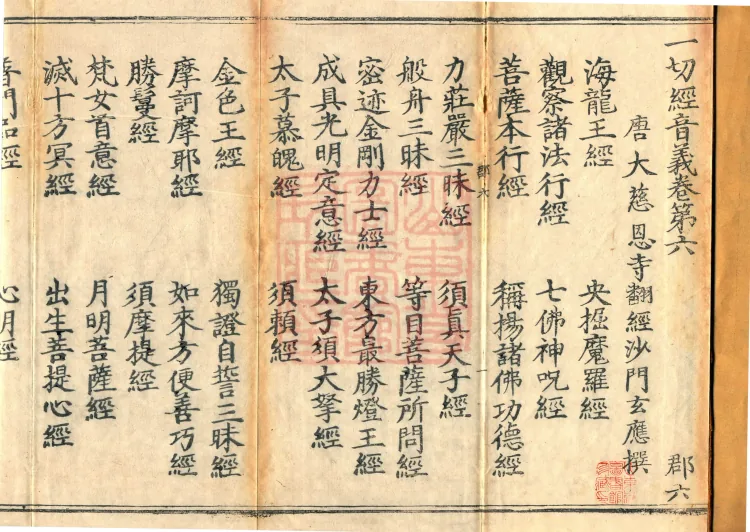 一切經音義卷第六 郡六
唐大慈恩寺翻經沙門玄應撰
海龍王經 央掘魔羅經
觀察諸法行經 七佛神呪經
菩薩本行經 稱揚諸佛功德經
郡六 一
力莊嚴三昧經 須眞天子經
般舟三昧經 等目菩薩所問經
密迹金剛力士經 東方最勝燈王經
成具光明定意經 太子須大拏經
太子慕魄經 須頼經
金色王經 獨證自誓三昧經
摩訶摩耶經 如來方便善巧經
勝鬘經 須摩提經
梵女首意經 月明菩薩經
滅十方冥經 出生菩提心經
心明經